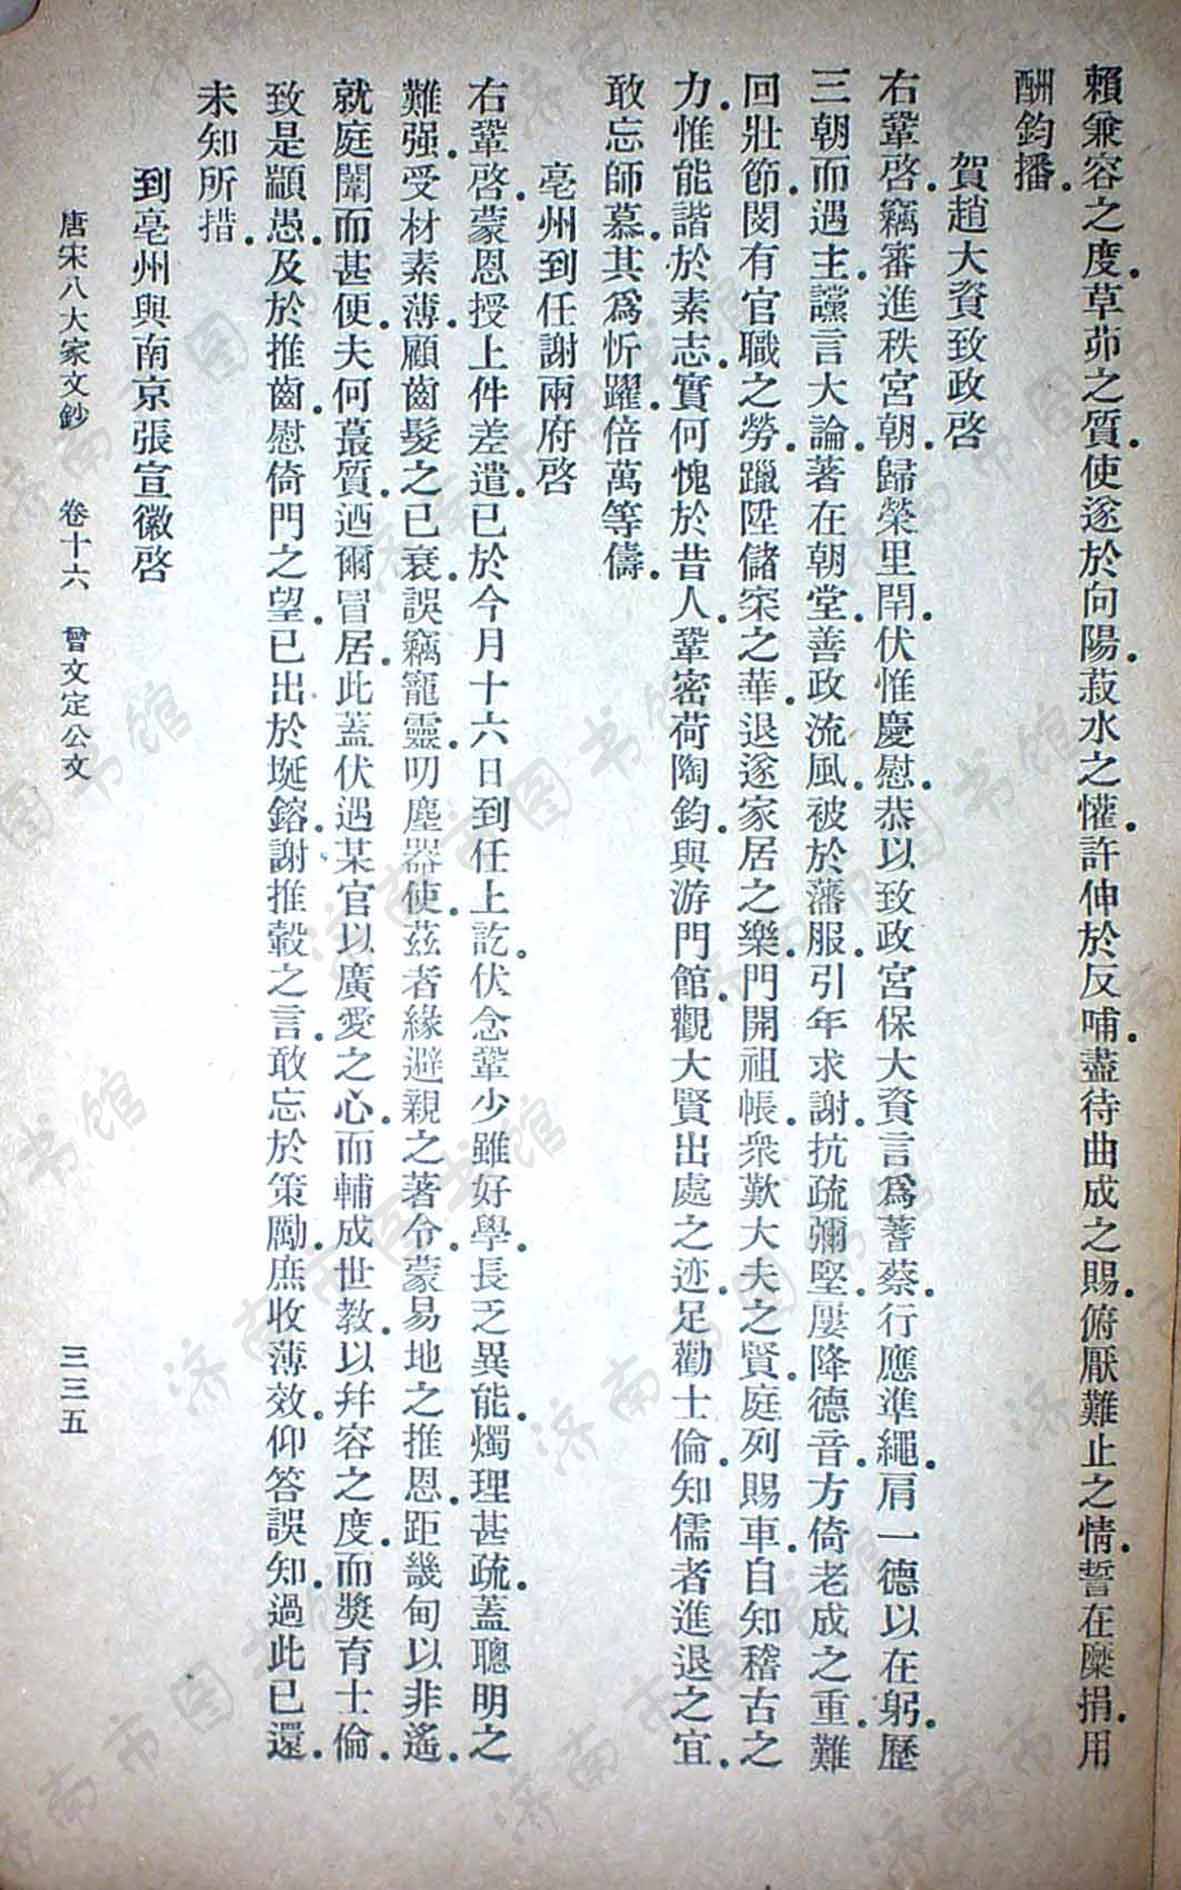 賴兼容之度。草茆之質。使遂於向陽。菽水之懽。許伸於反哺。盡待曲成之賜。俯厭難止之情。誓在糜捐。用
酬鈞播。
賀趙大資致政啓
右鞏啓。竊審進秩宮朝。歸榮里閈。伏惟慶慰。恭以致政宮保大資言爲蓍蔡。行應準繩。肩一德以在躬。歷
三朝而遇主。讜言大論。著在朝堂。善政流風。被於藩服。引年求謝。抗疏彌堅。屢降德音。方倚老成之重。難
回壯節。閔有官職之勞。躐陞儲寀之華。退遂家居之樂。門開祖帳。衆歎大夫之賢。庭列賜車。自知稽古之
力。惟能諧於素志。實何愧於昔人。鞏密荷陶鈞。與游門館。觀大賢出處之迹。足勸士倫。知儒者進退之宜。
敢忘師慕。其爲忻躍。倍萬等儔。
亳州到任謝兩府啓
右鞏啓。蒙恩授上件差遣。已於今月十六日到任上訖。伏念鞏少雖好學。長乏異能。燭理甚疏。蓋聰明之
難强。受材素薄。顧齒髮之已衰。誤竊寵靈。叨塵器使。茲者緣避親之著令。蒙易地之推恩。距畿甸以非遙。
就庭闈而甚便。夫何蕞質。迺爾冒居。此蓋伏遇某官以廣愛之心。而輔成世教。以幷容之度。而獎育士倫。
致是顓愚。及於推齒。慰倚門之望。已出於埏鎔。謝推轂之言。敢忘於策勵。庶收薄效。仰答誤知。過此已還。
未知所措。
到亳州與南京張宣徽啓
唐宋八大家文鈔 卷十六 曾文定公文 三三五
济南市图书馆